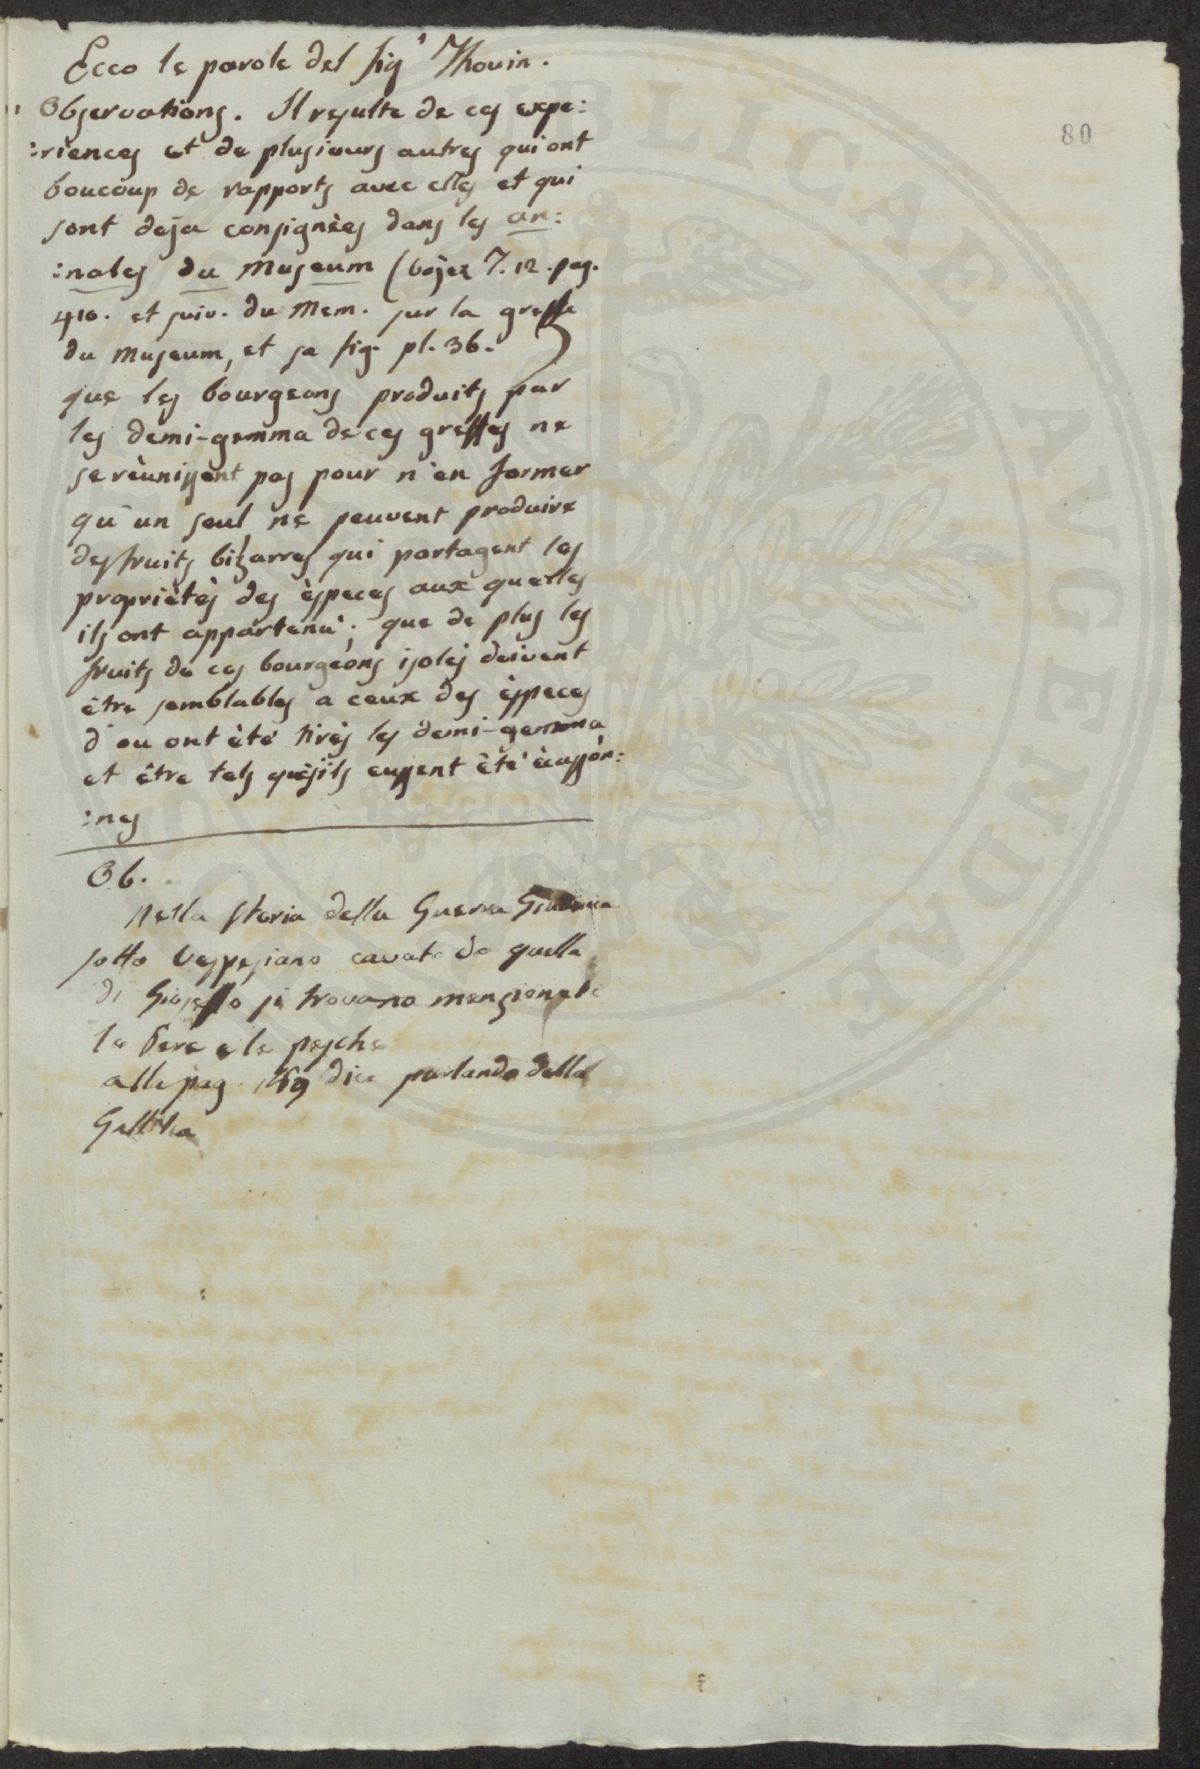 80
Ecco le parole del sig.r Thouin.
" Observations. Il resulte de ces expe:
:riences et de plusieurs autres qui ont
boucoup de rapports avec elles et qui
sont deja consignèes dans les an:
:nales du Museum (Vojez T. 12. pag.
410. et suiv. du Mem. sur la greffe
du Museum, et sa fig. pl. 36.)
que les bourgeons produits par
les demi-gemma de ces greffes ne
se rèunissent pas pour n'en former
qu'un seul ne peuvent produire
des fruits bizarres qui partagent les
proprietès des èspeces aux quelles
ils ont appartenu; que de plus les
fruits de ces bourgeons isolès doivent
être semblables a ceux des èspeces
d'ou ont ètè tirès les demi-gemma
et être tels qu'ils eussent ètè
:nes
Ob.
Nella storia della Guerra Giudaica
sotto Vespesiano cavata da quella
di Gioseffo si trovano menzionate
le Pere e le pesche
alla pag. 169 dice parlando della
Galilea
PUBLICAE AUGENDAE